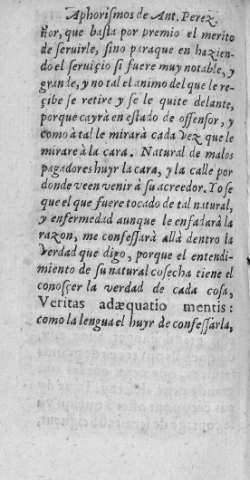 Aphorismos de Ant. Perez
ñor, que basta por premio el merito
de seruirle, sino paraque en hazien-
do el seruiçio si fuere muy notable, y
grande, y no tal el animo del que le re-
çibe se retire y se le quite delante,
porque cayrà en estado de offensor, y
como à tal le mirarà cada vez que le
mirare à la cara. Natural de malos
pagadores huyr la cara, y la calle por
donde veen venir à su acreedor. Yo se
que el que fuere tocado de tal natural,
y enfermedad aunque le enfadarà la
razon, me confessarà allà dentro la
verdad que digo, porque el entendi-
miento de su natural cosecha tiene el
conosçer la verdad de cada cosa,
Veritas adæquatio mentis:
como la lengua el huyr de confessarla,